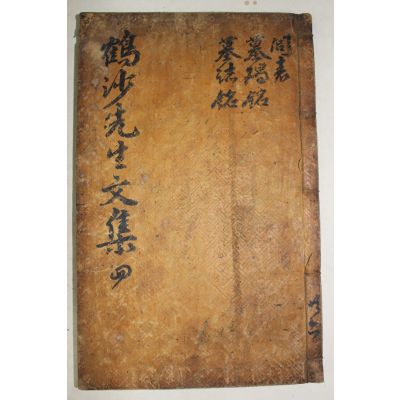 表
墓碣銘
墓誌銘
鶴沙先生文集 四